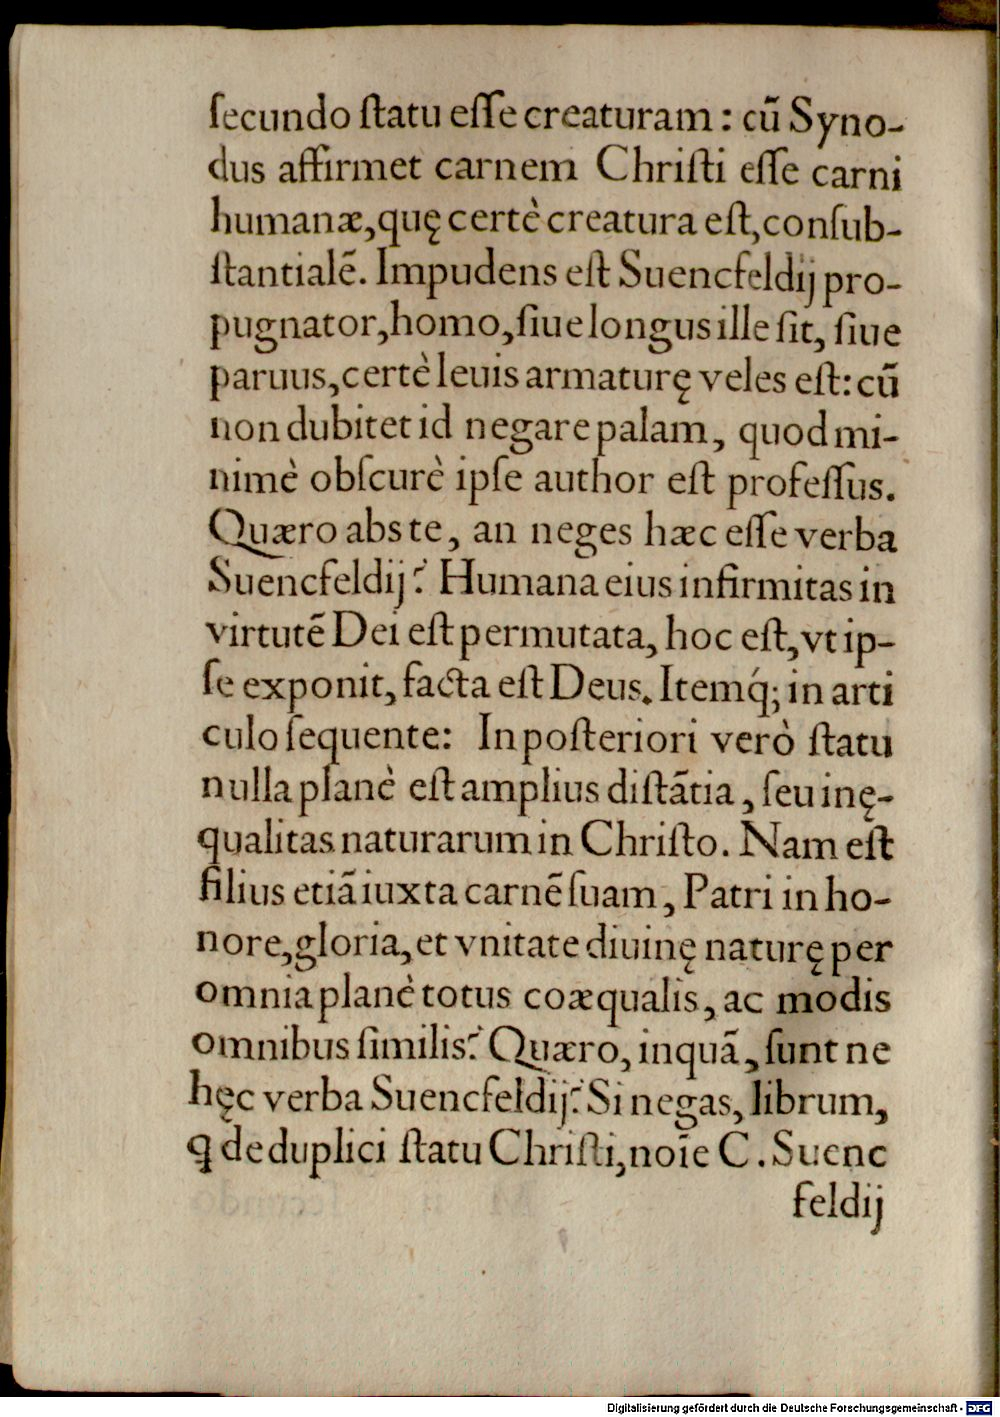 ſecundo ſtatu eſſe creaturam: cũ Syno-
dus affirmet carnem Chriſti eſſe carni
humanæ, quę certè creatura eſt, conſub-
ſtantialẽ. Impudens eſt Suencfeldij pro-
pugnator, homo, ſiue longus ille ſit, ſiue
paruus, certè leuis armaturę veles eſt: cũ
non dubitet id negare palam, quod mi-
nimè obſcurè ipſe author eſt profeſſus.
Quæro abs te, an neges hæc eſſe verba
Suencfeldij? Humana eius infirmitas in
virtutẽ Dei eſt permutata, hoc eſt, vt ip-
ſe exponit, facta eſt Deus. Itemq́; in arti
culo ſequente: In poſteriori verò ſtatu
nulla planè eſt amplius diſtãtia, ſeu inę-
qualitas naturarum in Chriſto. Nam eſt
filius etiã iuxta carnẽ ſuam, Patri in ho-
nore, gloria, et vnitate diuinę naturę per
omnia planè totus coæqualis, ac modis
omnibus ſimilis? Quæro, inquã, ſunt ne
hęc verba Suencfeldij? Si negas, librum,
ꝗ de duplici ſtatu Chriſti, noĩe C. Suenc
feldij
Digitalisierung gefördert durch die Deutsche Forschungsgemeinschaft - DFG